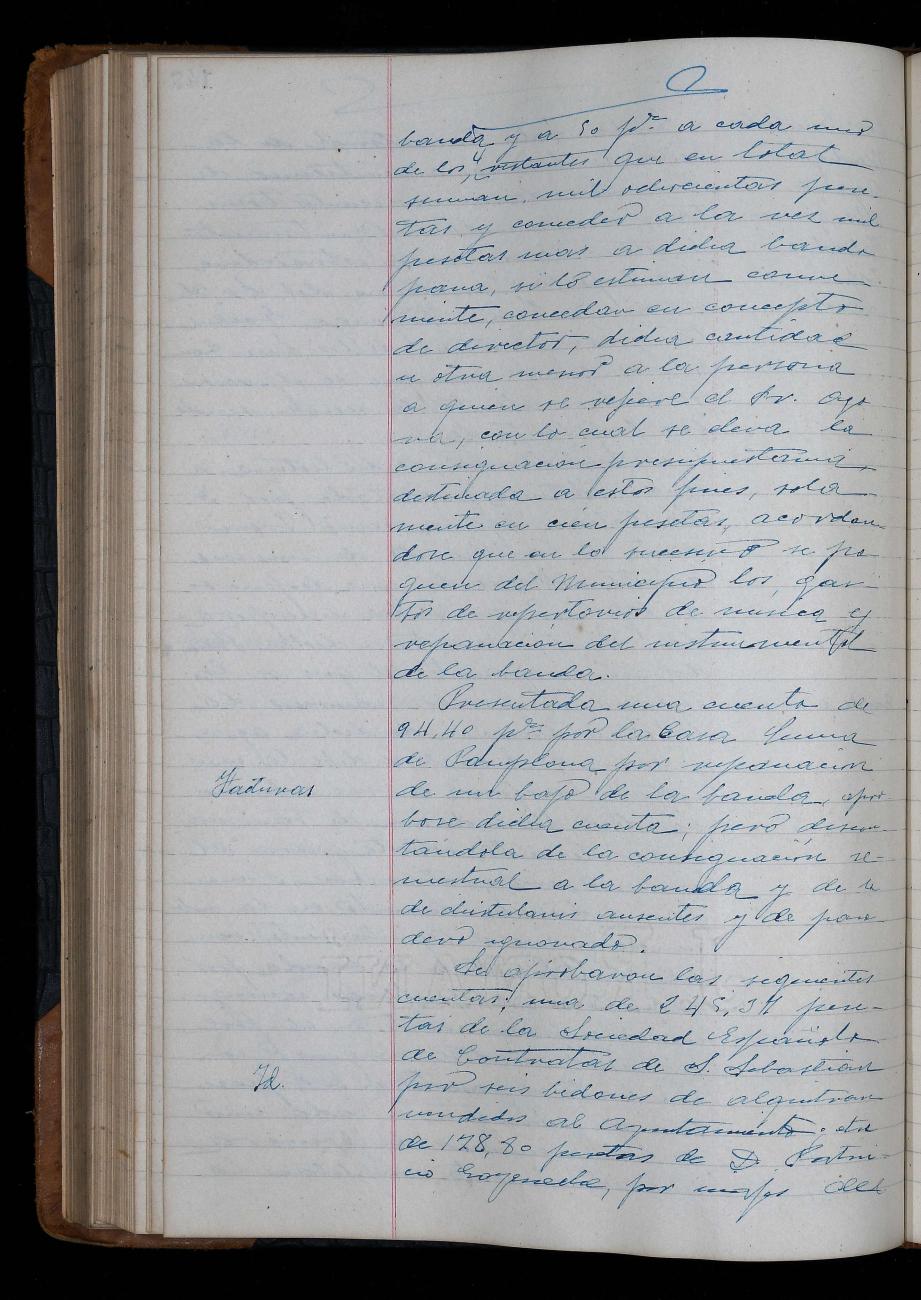 banda y a 50 pts. a cada uno
de los 4 restantes que en total
suman, mil ochocientas pese-
tas y conceder a la vez mil
pesetas mas a dicha banda
para, si lo estiman conve
niente, concedan en concepto
de director, dicha cantidad
u otra menor a la persona
a quien se refiere el Sr.
con lo cual se eleva la
consignación presupuestaria,
destinada a estos fines, sola-
mente en cien pesetas, acordan-
dose que en lo sucesivo se pa
guen del Municipio los, gas
tos de repertorios de musica y
reparacion del instrumental
de la banda.
Presentada una cuenta de
94,40 pts. por la Casa
de Pamplona por reparacion
Facturas
de un bajo de la banda, apro
bose dicha cuenta; pero descon-
tándola de la consignación se-
mestral a la banda y de la
de ausentes y de para-
dero ignorado.
Se aprobaron las siguientes
cuentas; una de 245,31 pese-
tas de la Sociedad Española
de Contratas de S. Sebastian
Id.
por seis bidones de alquitran
vendidos al Ayuntamiento; otra
de 178,80 pesetas de D. Patri-
cio Goyeneche, por